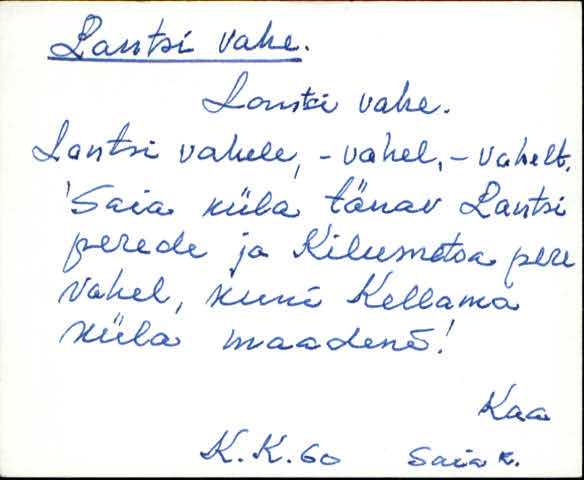 Lantsi vahe.
Lantsi vahe.
Lantsi vahele, -vahel, -vahelt.
'Saia küla tänav Lantsi
perede ja Kilumetsa pere
vahel, kuni Kellama
küla maadenè!
Kaa
K.K.60 Saia k.